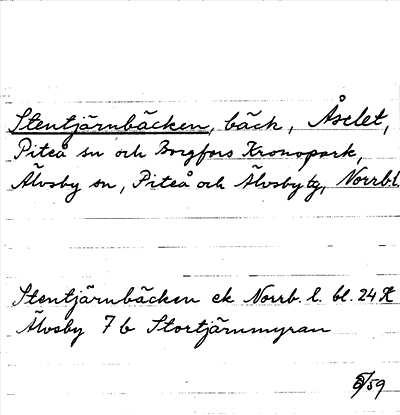 Stentjärnbäcken, bäck, Åselet,
Piteå sn och Borgfors Kronopark,
Älvsby sn, Piteå och Älvsby tg, Norrb.l
Stentjärnbäcken ek Norrb. l. bl. 24
Älvsby 7 b Stortjärnmyran
/59